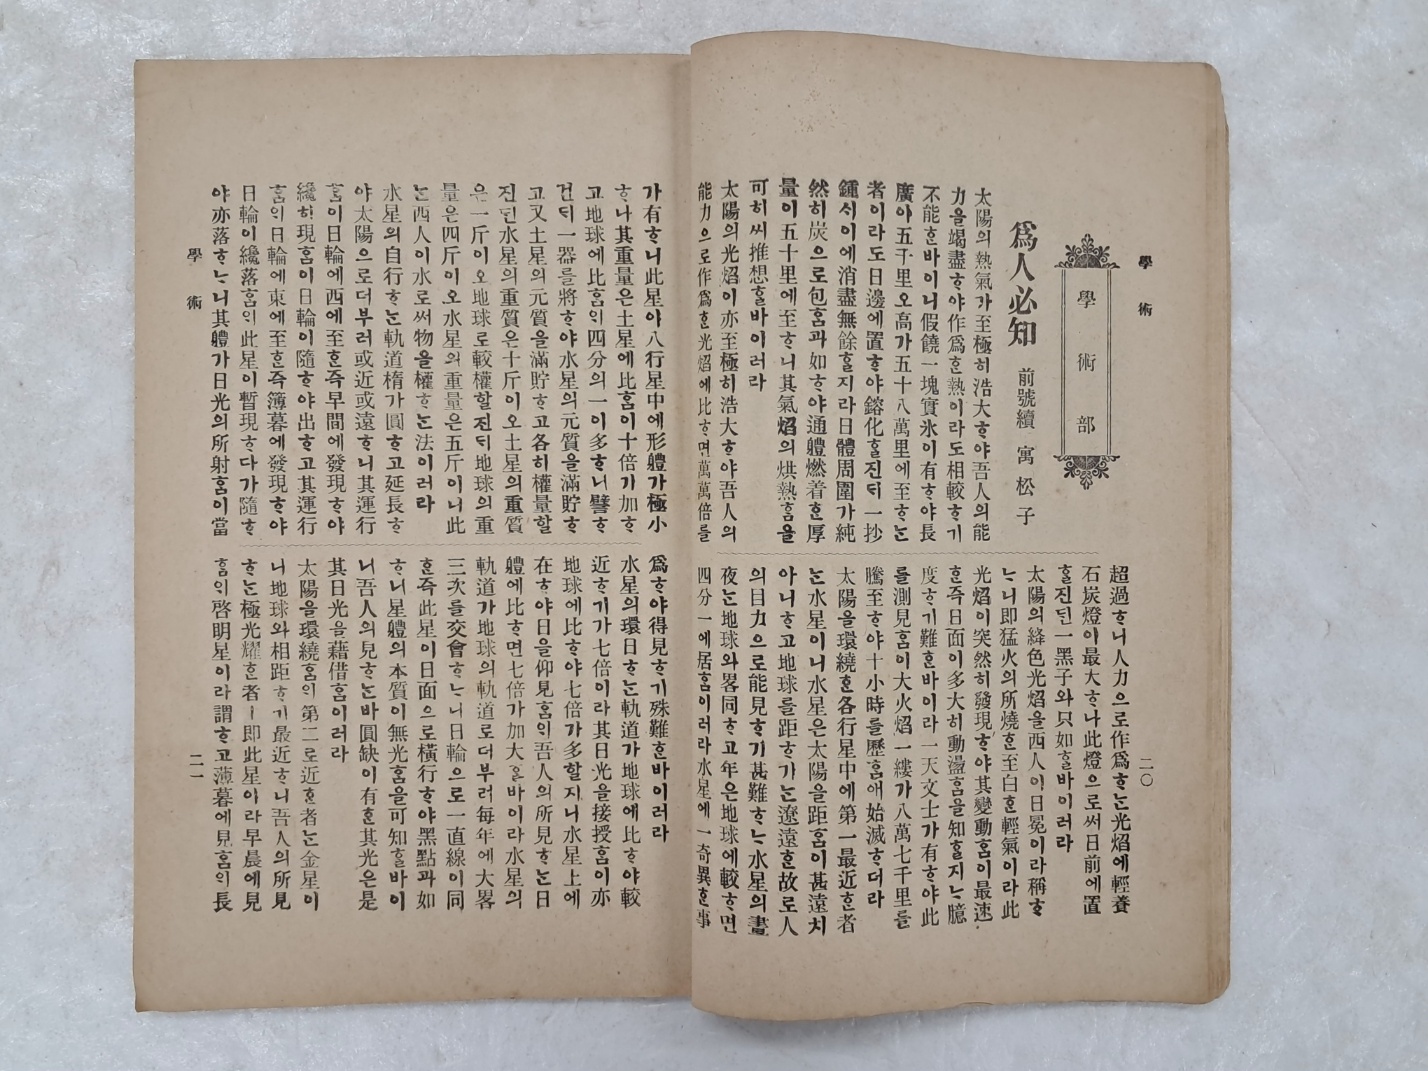 學術
學術部
爲人必知 前號續 寓松子
太陽의熱氣가至極히浩大ᄒᆞ야吾人의能
力을竭盡ᄒᆞ야作爲ᄒᆞᆫ熱이라도相較ᄒᆞ기
不能ᄒᆞᆫ바이니假饒一塊實氷이有ᄒᆞ야長
廣아五千里오高가五十八萬里에至ᄒᆞᄂᆞᆫ
者이라도日邊에置ᄒᆞ야鎔化ᄒᆞᆯ진ᄃᆡ一抄
鍾서이에消盡無餘ᄒᆞᆯ지라日體周圍가純
然히炭으로包ᄒᆞᆷ과如ᄒᆞ야通體燃着ᄒᆞᆫ厚
量이五十里에至ᄒᆞ니其氣焰의烘熱ᄒᆞᆷ을
可히ᄡᅥ推想ᄒᆞᆯ바이러라
太陽의光焰이亦至極히浩大ᄒᆞ야吾人의
能力으로作爲ᄒᆞᆫ光焰에比ᄒᆞ면萬萬倍를
超過ᄒᆞ니人力으로作爲ᄒᆞᄂᆞᆫ光焰에輕養
石炭燈이最大ᄒᆞ나此燈으로써日前에置
ᄒᆞᆯ진ᄃᆡᆫ一黑子와只如ᄒᆞᆯ바이러라
太陽의絳色光焰을西人이日冕이라稱ᄒᆞ
ᄂᆞ니即猛火의所燒ᄒᆞᆫ至白ᄒᆞᆫ輕氣이라此
光焰이突然히發現ᄒᆞ야其變動ᄒᆞᆷ이最速
ᄒᆞᆫ즉日面이多大히動盪ᄒᆞᆷ을知ᄒᆞᆯ지ᄂᆞᆫ臆
度ᄒᆞ기難ᄒᆞᆫ바이라一天文士가有ᄒᆞ야此
를測見ᄒᆞᆷ이大火焰一縷가八萬七千里를
騰至ᄒᆞ야十小時를歷ᄒᆞᆷ애始滅ᄒᆞ더라
太陽을環繞ᄒᆞᆫ各行星中에第一最近ᄒᆞᆫ者
ᄂᆞᆫ水星이니水星은太陽을距ᄒᆞᆷ이甚遠치
아니ᄒᆞ고地球를距ᄒᆞ기ᄂᆞᆫ遼遠ᄒᆞᆫ故로人
의目力으로能見ᄒᆞ기甚難ᄒᆞᄂᆞ水星의晝
夜ᄂᆞᆫ地球와畧同ᄒᆞ고年은地球에較ᄒᆞ면
四分一에居ᄒᆞᆷ이러라水星에一奇異ᄒᆞᆫ事
二〇
가有ᄒᆞ니此星아八行星中에形體가極小
ᄒᆞ나其重量은土星에比ᄒᆞᆷ이十倍기加ᄒᆞ
고地球에比ᄒᆞᆷᄋᆡ四分의一이多ᄒᆞ니譬ᄒᆞ
건ᄃᆡ一器를將ᄒᆞ야水星의元質을滿貯ᄒᆞ
고又土星의元質을滿貯ᄒᆞ고各히權量할
진ᄃᆡᆫ水星의重質은十斤이오土星의重質
은一斤이오地球로較權할진ᄃᆡ地球의重
量은四斤이오水星의重量은五斤이니此
ᄂᆞᆫ西人이水로써物을權ᄒᆞᄂᆞᆫ法이러라
水星의自行ᄒᆞᄂᆞᆫ軌道楕가圓ᄒᆞ고延長ᄒᆞ
야太陽으로더부러或近或遠ᄒᆞ니其運行
ᄒᆞᆷ이日輪에西에至ᄒᆞᆫ즉早間에發現ᄒᆞ야
纔히現ᄒᆞᆷ이日輪이隨ᄒᆞ야出ᄒᆞ고其運行
ᄒᆞᆷᄋᆡ日輪에東에至ᄒᆞᆫ즉簿暮에發現ᄒᆞ야
日輪이纔落ᄒᆞᆷᄋᆡ此星이暫現ᄒᆞ다가隨ᄒᆞ
야亦落ᄒᆞᄂᆞ니其體가日光의所射ᄒᆞᆷ이當
爲ᄒᆞ야得見ᄒᆞ기殊難ᄒᆞᆫ바이러라
水星의環日ᄒᆞᄂᆞᆫ軌道가地球에比ᄒᆞ야較
近ᄒᆞ기가七倍이라其日光을接授ᄒᆞᆷ이亦
地球에比ᄒᆞ야七倍가多할지니水星上에
在ᄒᆞ야日을仰見ᄒᆞᆷᄋᆡ吾人의所見ᄒᆞᄂᆞᆫ日
體에比ᄒᆞ면七倍가加大ᄒᆞᆯ바이라水星의
軌道가地球의軌道로더부러每年에大畧
三次를交會ᄒᆞᄂᆞ니日輪으로一直線이同
ᄒᆞᆫ즉此星이日面으로橫行ᄒᆞ야黑點과如
ᄒᆞ니星體의本質이無光ᄒᆞᆷ을可知ᄒᆞᆯ바이
니吾人의見ᄒᆞᄂᆞᆫ바圓缺이有ᄒᆞᆫ其光은是
其日光을藉借ᄒᆞᆷ이러라
太陽을環繞ᄒᆞᆷᄋᆡ第二로近ᄒᆞᆫ者ᄂᆞᆫ金星이
니地球와相距ᄒᆞ기最近ᄒᆞ니吾人의所見
ᄒᆞᄂᆞᆫ極光耀ᄒᆞᆫ者ㅣ即此星이라早晨에見
ᄒᆞᆷᄋᆡ啓明星이라謂ᄒᆞ고薄暮에見ᄒᆞᆷᄋᆡ長
學術
二一